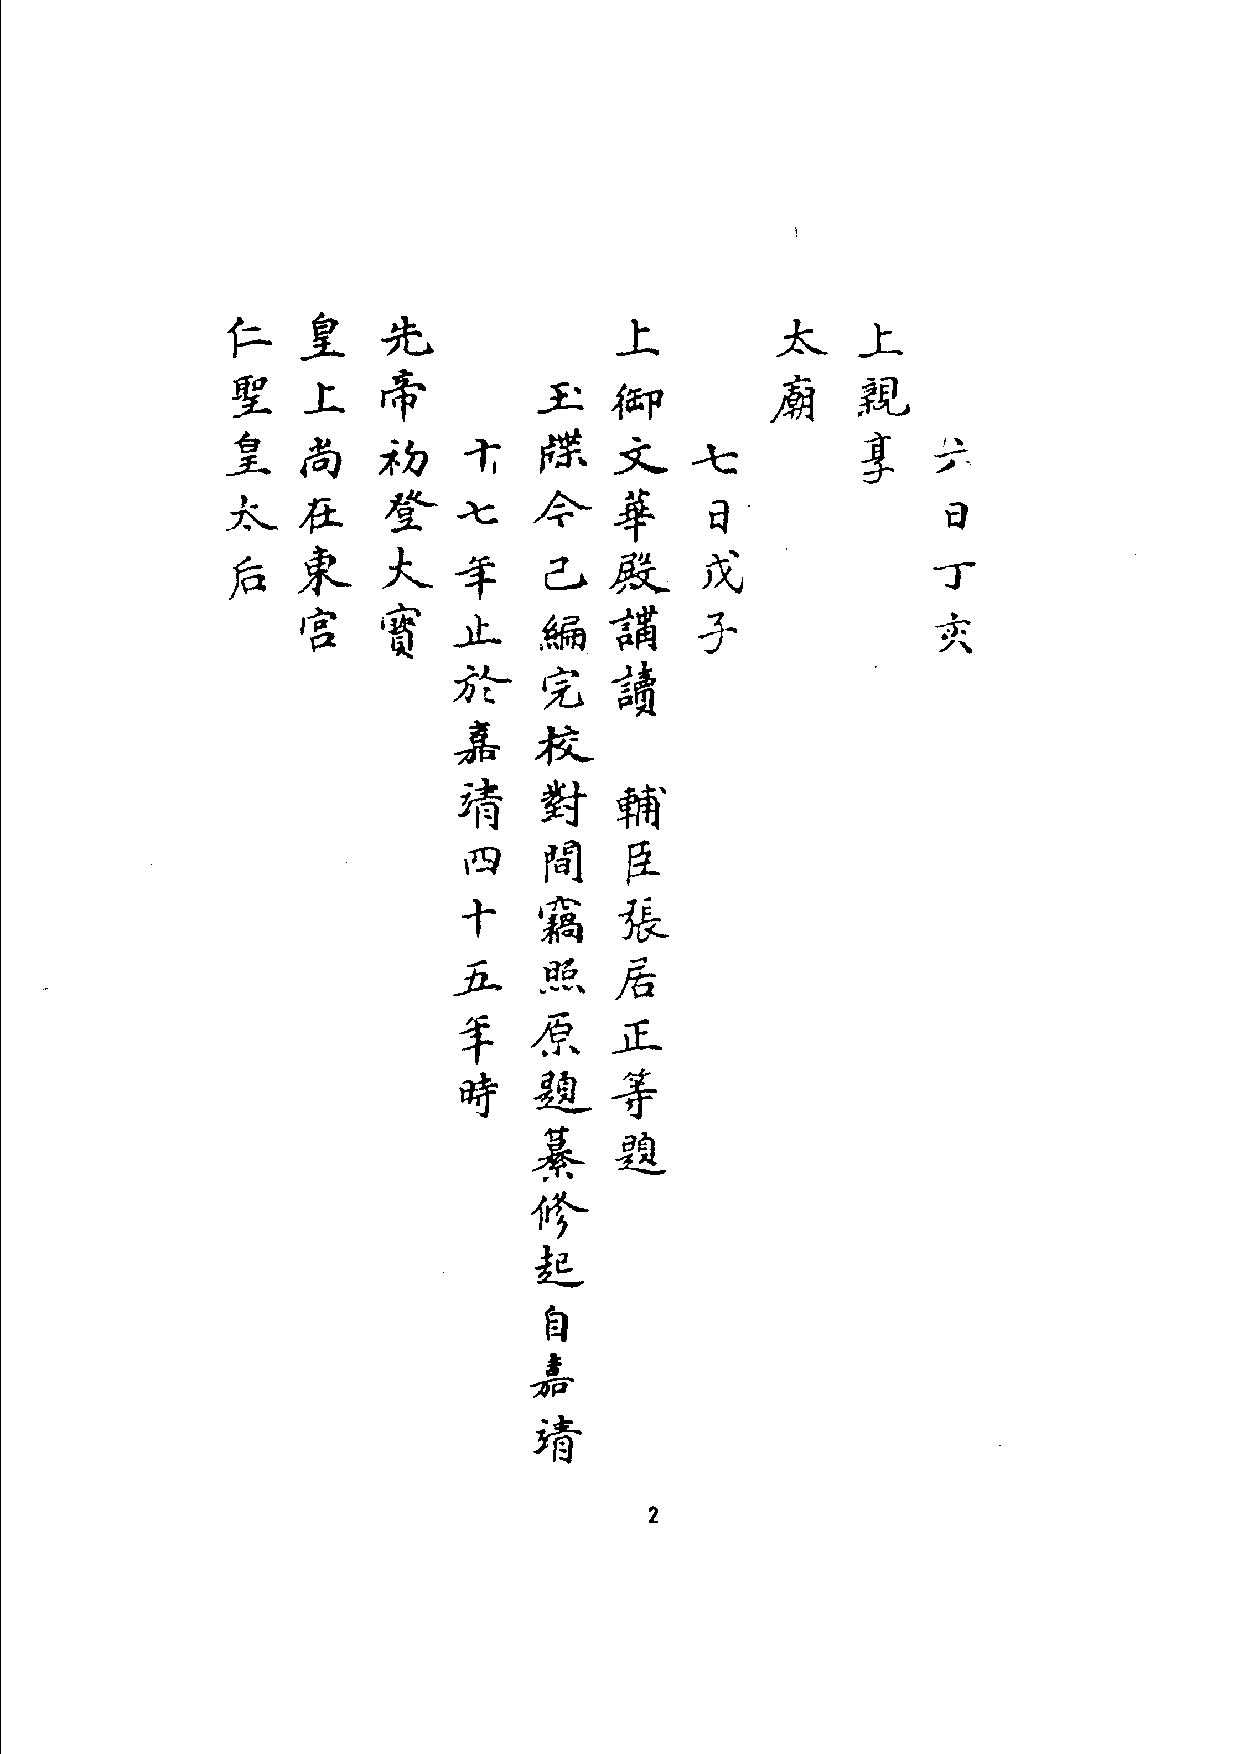 六日丁亥
上親享
太廟
七日戊子
上御文華殿講讀　輔臣張居正等題
玉牒今已編完校對間竊照原題纂修起自嘉靖
十七年止於嘉靖四十五年時
先帝初登大寶
皇上尚在東宮
仁聖皇太后
2